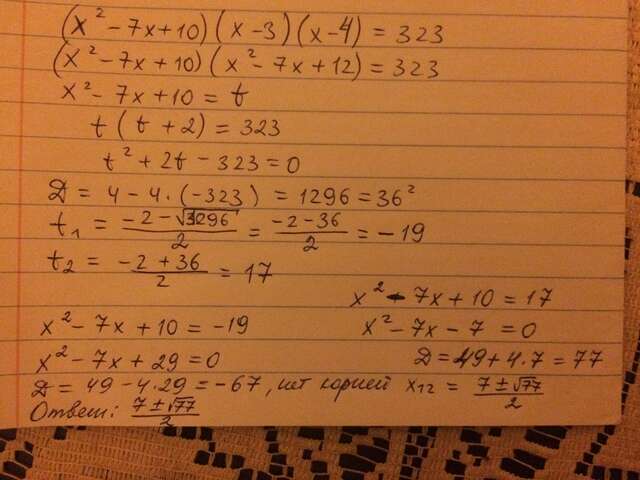 (x² - 7x + 10) (x - 3) (x - 4) = 323
(x² - 7x + 10) (x² - 7x + 12) = 323
x² - 7x + 10 = t
t (t + 2) = 323
t² + 2t - 323 = 0
D = 4 - 4 · (-323) = 1296 = 36²
t₁ = (-2 - √1296)/2 = (-2 - 36)/2 = -19
t₂ = (-2 + 36)/2 = 17
x² - 7x + 10 = -19
x² - 7x + 29 = 0
D = 49 - 4·29 = -67, нет корней
x² - 7x + 10 = 17
x² - 7x - 7 = 0
D = 49 + 4·7 = 77
x₁₂ = (7 ± √77)/2
Ответ: (7 ± √77)/2